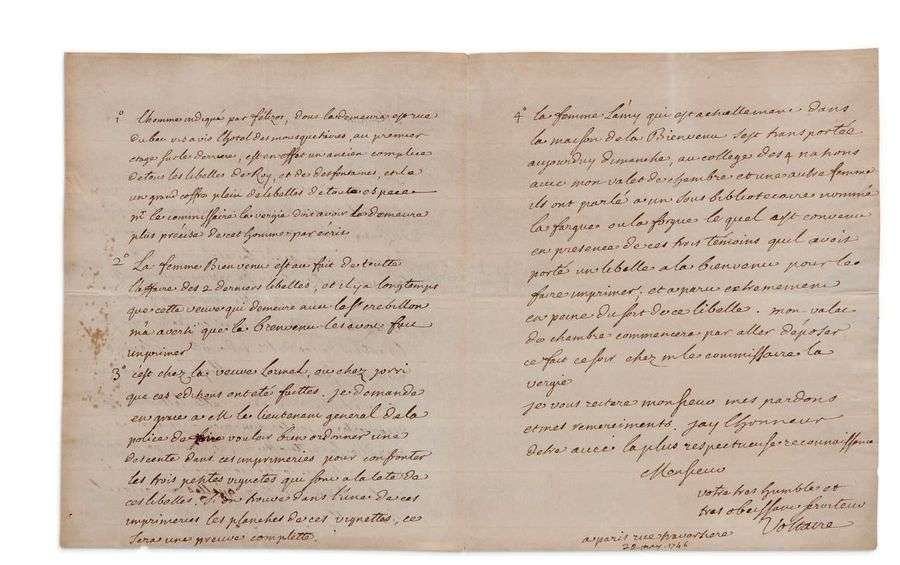 1° l'homme indiqué par félizot, dont la demeure est rue
du bac vis a vis l'hotel des mousquetaires, au premier
etage sur le derriere, est en effet un ancien complice
de tous les libelles de Roy, et de desfontaines, et il a
un grand coffre plein de libelles de toutte espece
mr le commissaire la vergie doit avoir la demeure
plus précise de cet homme par ecrit
2° La femme Bienvenu est au fait de toutte
l'affaire des 2 derniers libelles, et il y a longtemps
que cette veuve qui demeure avec le sr crebillon
m'a averti que la bienvenu les avoit fait
imprimer
3° c'est chez la veuve Lormel, ou chez jorri
que ces editions ont eté faittes. je demande
en grace a M. le lieutenant general de la
police de vouloir bien ordonner une
descente dans ces imprimeries pour confronter
les trois petites vignettes qui sont a la tete de
ces libelles. si on trouve dans l'une de ces
imprimeries les planches de ces vignettes, ce
sera une preuve complette.
4° la femme Lamy qui est actuellement dans
la maison de la Bienvenu s'est transportée
aujourduy dimanche, au college des 4 nations
avec mon valet de chambre et une autre femme
ils ont parlé a un sous bibliotecaire nommé
la fargue ou la forgue le quel a est convenu
en presence de ces trois témoins qu'il avoit
porté un libelle a la bienvenu pour le
faire imprimer; et a paru extremement
en peine du sort de ce libelle. mon valet
de chambre commencera par aller deposer
ce fait ce soir chez m le commissaire la
vergie
je vous reitere monsieur mes pardons
et mes remerciments. jay l'honneur
detre avec la plus respectueuse reconnoissance
Monsieur
votre tres humble et
tres obeissant serviteur
Voltaire
a paris rue traversiere
29 may 1746